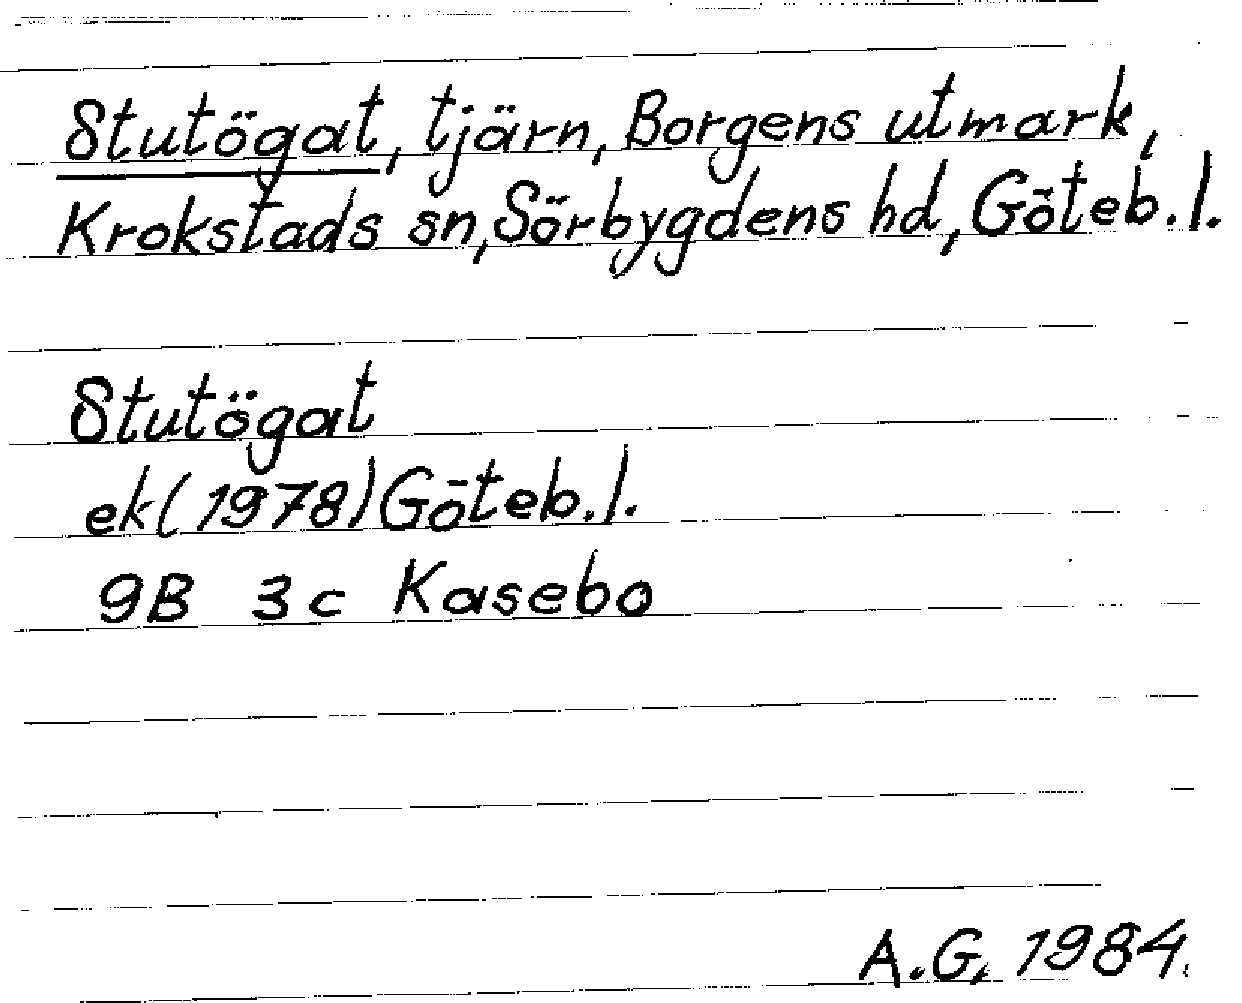 Stutögat, tjärn, Borgens utmark,
Krokstads sn, Sörbygdens hd, Göteb. l.
Stutögat
ek (1978) Göteb. l.
9B 3c Kasebo
A.G. 1984.